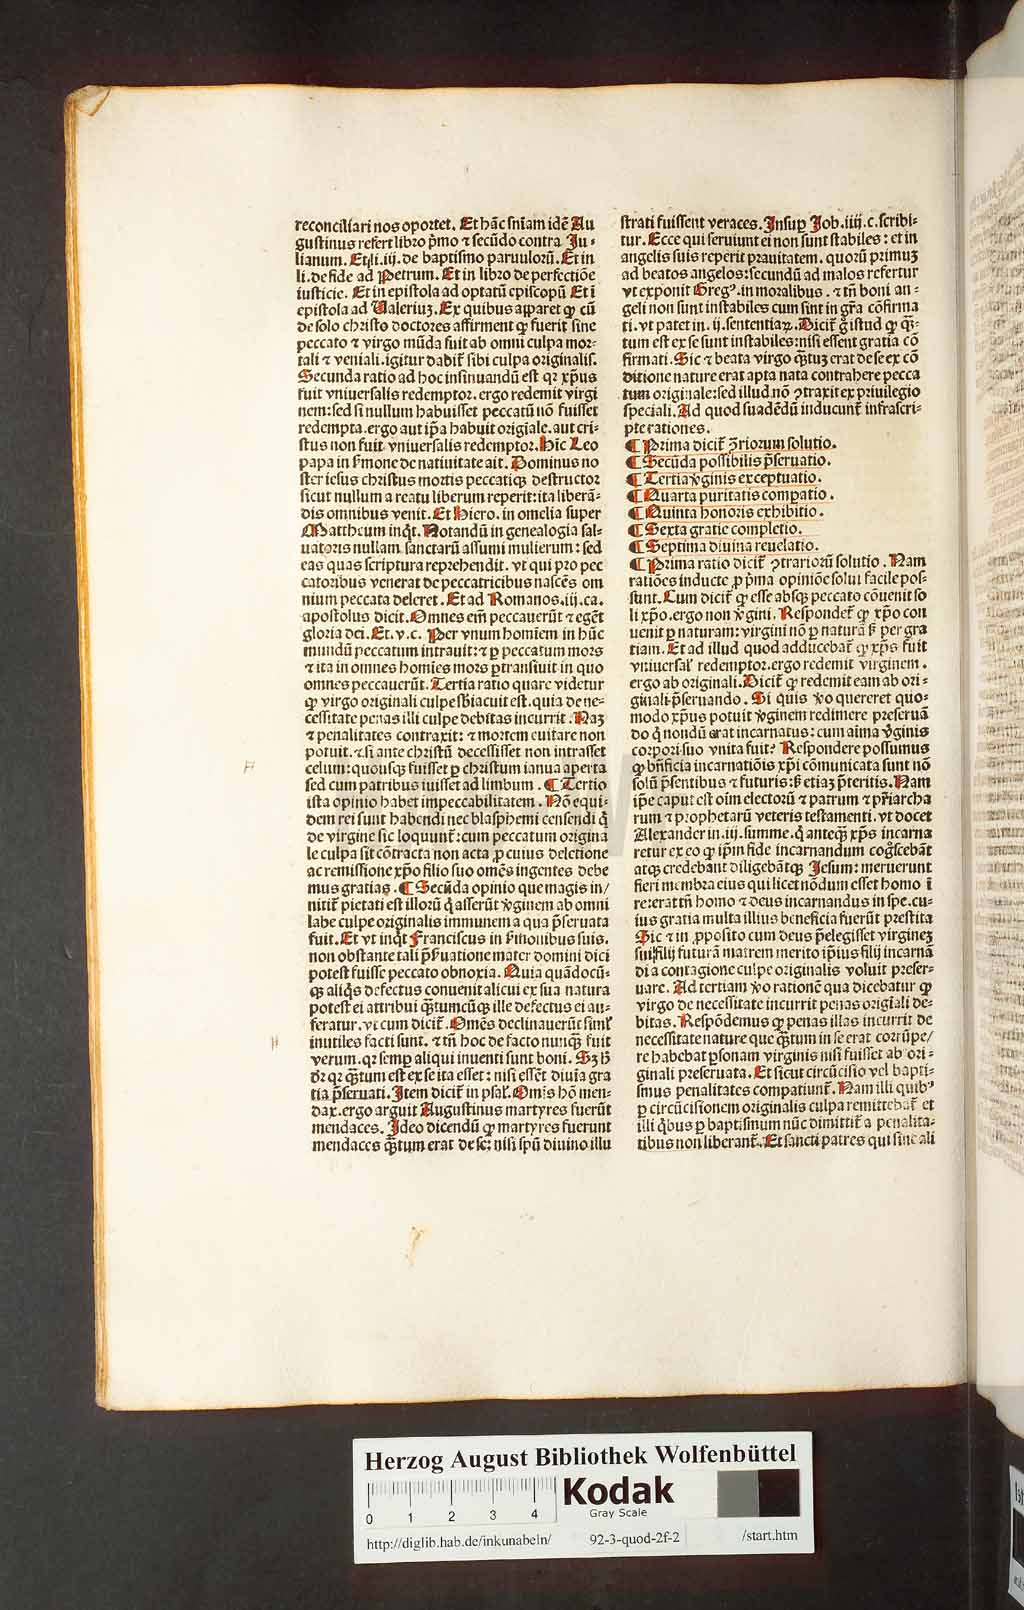 reconciliari nos oportet. Et hāc sn̄iam idē Au
gustinus refert libro p̄mo ⁊ secūdo contra Ju⸗
lianum. Et li. iij. de baptismo paruulorū. Et in
li. de fide ad Petrum. Et in libro de perfectiōe
iusticie. Et in epistola ad optatū episcopū Et ī
epistola ad Ualeriuꝫ. Ex quibus apparet ꝙ cū
de solo christo doctores affirment ꝙ fuerit sine
peccato ⁊ virgo mūda fuit ab omni culpa mor⸗
tali ⁊ veniali. igitur dabit̄ sibi culpa originalis.
Secunda ratio ad hoc insinuandū est qꝛ xp̄us
fuit vniuersalis redemptor. ergo redemit virgi
nem: sed si nullum habuisset peccatū nō fuisset
redempta. ergo aut ip̄a habuit origīale. aut cri⸗
stus non fuit vniuersalis redemptor. Hic Leo
papa in s̄mone de natiuitate ait. Dominus no
ster iesus christus mortis peccatiqꝫ destructor
sicut nullum a reatu liberum reperit: ita liberā⸗
dis omnibus venit. Et Hiero. in omelia super
Mattheum inq̄t. Notandū in genealogia sal⸗
uatoris nullam sanctarū assumi mulierum: sed
eas quas scriptura reprehendit. vt qui pro pec
catoribus venerat de peccatricibus nascēs om
nium peccata deleret. Et ad Romanos. iij. ca.
apostolus dicit. Omnes em̄ peccauerūt ⁊ egēt
gloria dei. Et. v. c. Per vnum homiem in hūc
mundū peccatum intrauit: ⁊ ꝑ peccatum mors
⁊ ita in omnes homīes mors ꝑtransiuit in quo
omnes peccauerūt. Tertia ratio quare videtur
ꝙ virgo originali culpe sb̄iacuit est. quia de ne⸗
cessitate penas illi culpe debitas incurrit. Naꝫ
⁊ penalitates contraxit: ⁊ mortem euitare non
potuit. ⁊ si ante christū decessisset non intrasset
celum: quousqꝫ fuisset ꝑ christum ianua aperta
sed cum patribus iuisset ad limbum. ¶ Tertio
ista opinio habet impeccabilitatem. Nō equi⸗
dem rei sunt habendi nec blasphemi censendi q̄
de virgine sic loquunt̄: cum peccatum origina
le culpa sit cōtracta non acta ꝓ cuius deletione
ac remissione xp̄o filio suo omēs ingentes debe
mus gratias. ¶ Secūda opinio que magis in/
nitit̄ pietati est illorū q̄ asserūt v̄ginem ab omni
labe culpe originalis immunem a qua p̄seruata
fuit. Et vt inq̄t Franciscus in s̄monibus suis.
non obstante tali p̄s̄uatione mater domini dici
potest fuisse peccato obnoxia. Quia quādocū⸗
qꝫ aliq̄s defectus conuenit alicui ex sua natura
potest ei attribui q̄ꝫtumcūqꝫ ille defectus ei au⸗
feratur. vt cum dicit̄. Omēs declinauerūt siml̕
inutiles facti sunt. ⁊ tn̄ hoc de facto nunqꝫ fuit
verum. qꝛ semꝑ aliqui inuenti sunt boni. Sꝫ ꝓ
dr̄ qꝛ q̄ꝫtum est ex se ita esset: nisi essēt diuīa gra
tia p̄seruati. Item dicit̄ in psal̕. Omīs hō men⸗
dax. ergo arguit Augustinus martyres fuerūt
mendaces. Ideo dicendū ꝙ martyres fuerunt
mendaces q̄ꝫtum erat de se: nisi spū diuino illu
strati fuissent veraces. Insuꝑ Job. iiij. c. scribi⸗
tur. Ecce qui seruiunt ei non sunt stabiles: et in
angelis suis reperit prauitatem. quorū primuꝫ
ad beatos angelos: secundū ad malos refertur
vt exponit Greg⁹. in moralibus. ⁊ tn̄ boni an⸗
geli non sunt instabiles cum sint in gr̄a cōfirma
ti. vt patet in. ij. sententiaꝝ. Dicit̄ g̊ istud ꝙ q̄ꝫ⸗
tum est ex se sunt instabiles: nisi essent gratia cō
firmati. Sic ⁊ beata virgo q̄ꝫtuꝫ erat de se ex cō
ditione nature erat apta nata contrahere pecca
tum originale: sed illud nō ꝯtraxit ex priuilegio
speciali. Ad quod suadēdū inducunt̄ infrascri⸗
pte rationes.
¶ Prima dicit̄ ꝯ̄riorum solutio.
¶ Secūda possibilis p̄seruatio.
¶ Tertia v̄ginis exceptuatio.
¶ Quarta puritatis compatio.
¶ Quinta honoris exhibitio.
¶ Sexta gratie completio.
¶ Septima diuina reuelatio.
¶ Prima ratio dicit̄ ꝯtrariorū solutio. Nam
ratiōes inducte ꝓ p̄ma opiniōe solui facile pos⸗
sunt. Cum dicit̄ ꝙ esse absqꝫ peccato cōuenit so
li xp̄o. ergo non v̄gini. Respondet̄ ꝙ xp̄o con
uenit ꝑ naturam: virgini nō ꝑ naturā s̄ per gra
tiam. Et ad illud quod adducebat̄ ꝙ xp̄s fuit
vniuersal̕ redemptor. ergo redemit virginem.
ergo ab originali. Dicit̄ ꝙ redemit eam ab ori⸗
ginali p̄seruando. Si quis v̊o quereret quo⸗
modo xp̄us potuit v̄ginem redimere preseruā
do q̄ nondū erat incarnatus: cum aīma v̄ginis
corpori suo vnita fuit? Respondere possumus
ꝙ bn̄ficia incarnatiōis xp̄i cōmunicata sunt nō
solū p̄sentibus ⁊ futuris: s̄ etiaꝫ p̄teritis. Nam
ip̄e caput est oīm electorū ⁊ patrum ⁊ pr̄iarcha
rum ⁊ prophetarū veteris testamenti. vt docet
Alexander in. iij. summe. q̄ anteqꝫ xp̄s incarna
retur ex eo ꝙ ip̄m in fide incarnandum cog̊scebāt
atqꝫ credebant diligebātqꝫ Jesum: meruerunt
fieri membra eius qui licet nōdum esset homo ī
re: erat tn̄ homo ⁊ deus incarnandus in spe. cu⸗
ius gratia multa illius beneficia fuerūt prestita
Sic ⁊ in ꝓposito cum deus p̄elegisset virgineꝫ
sui filij futurā matrem merito ip̄ius filij incarnā
di a contagione culpe originalis voluit preser⸗
uare. Ad tertiam v̊o rationē qua dicebatur ꝙ
virgo de necessitate incurrit penas origīali de⸗
bitas. Respōdemus ꝙ penas illas incurrit de
necessitate nature que q̄ꝫtum in se erat corrūpe/
re habebat ꝑsonam virginis nisi fuisset ab ori⸗
ginali preseruata. Et sicut circūcisio vel bapti⸗
smus penalitates compatiunt̄. Nam illi quib⁹
ꝑ circūcisionem originalis culpa remittebat̄ et
illi q̄bus ꝑ baptismum nūc dimittit̄ a penalita⸗
tibus non liberant̄. Et sancti patres qui sine ali
Herzog August Bibliothek Wolfenbüttel
0 1 2 3 4
Kodak
Gray Scale
http://diglib.hab.de/inkunabeln/ 92-3-quod-2f-2 /start.htm